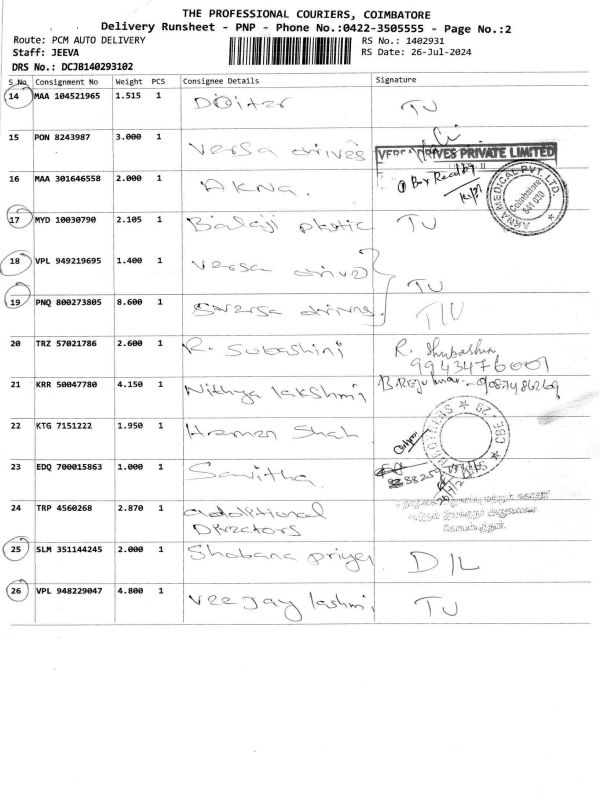 THE PROFESSIONAL COURIERS, COIMBATORE
Delivery Runsheet - PNP - Phone No.:0422-3505555 - Page No.:2
Route: PCM AUTO DELIVERY RS No.: 1402931
Staff: JEEVA RS Date: 26-Jul-2024
DRS No.: DCJB140293102
S_No Consignment No Weight PCS Consignee Details Signature
14 MAA 104521965 1.515 1 TU
15 PON 8243987 3.000 1 Versa drives
VERSA DRIVES PRIVATE LIMITED
16 MAA 301646558 2.000 1 AKNA.
① Box Recd by
AKNA MEDICAL PVT. LTD.
Coimbatore
641 030
17 MYD 10030790 2.105 1 Balaji TU
18 VPL 949219695 1.400 1 Versa drive TU
19 PNQ 800273805 8.600 1 Versa drives
20 TRZ 57021786 2.600 1 R. Subashini R. Shubashini
9943476001
21 KRR 50047780 4.150 1 Nithya lakshmi
22 KTG 7151222 1.950 1 Hemen Shah
23 EDQ 700015863 1.000 1 Savitha.
24 TRP 4560268 2.870 1 additional
Directors
25 SLM 351144245 2.000 1 Shobana priya D/L
26 VPL 948229047 4.800 1 Vee Jay lashmi TU